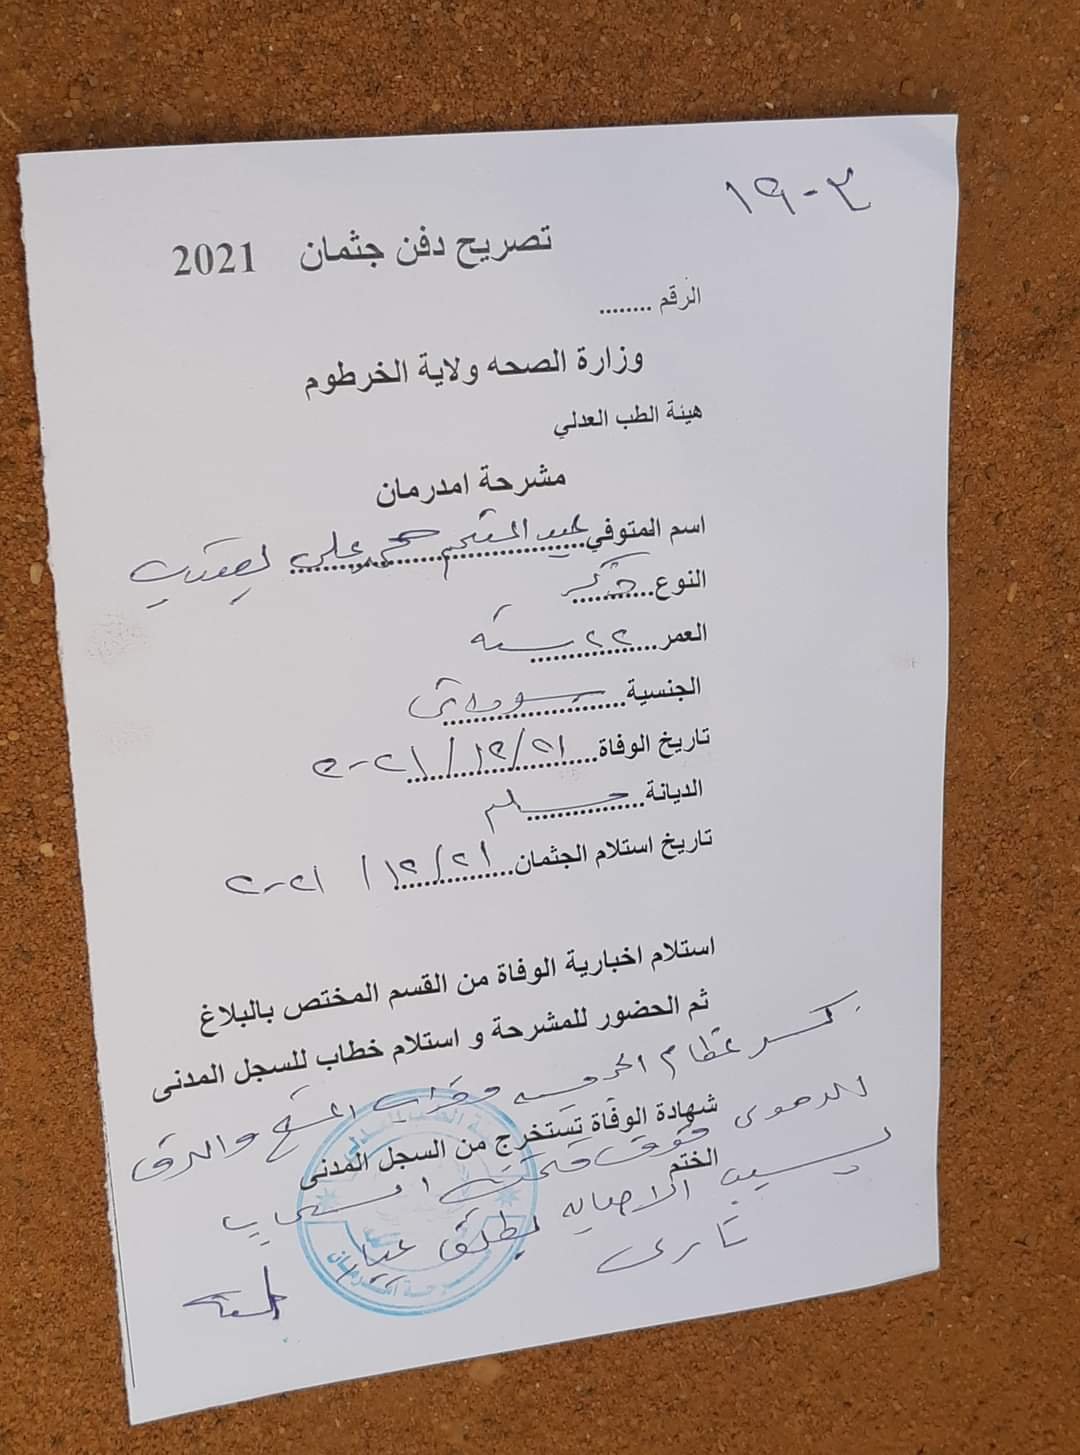 ٣-١٩
تصريح دفن جثمان 2021
الرقم ........
وزارة الصحه ولاية الخرطوم
هيئة الطب العدلي
مشرحة امدرمان
اسم المتوفي عبد المنعم محمد علي
النوع ذكر
العمر ٢٢ سنه
الجنسية سوداني
تاريخ الوفاة ٢١/١٢/٢٠٢١
الديانة مسلم
تاريخ استلام الجثمان ٢١/١٢/٢٠٢١
استلام اخبارية الوفاة من القسم المختص بالبلاغ
ثم الحضور للمشرحة و استلام خطاب للسجل المدنى
كسر عظام الجمجمه المخ والنزف
شهادة الوفاة تستخرج من السجل المدنى
الدموى السحايا
الختم
بسبب الاصابه بطلق عيار
نارى
مشرحة امدرمان